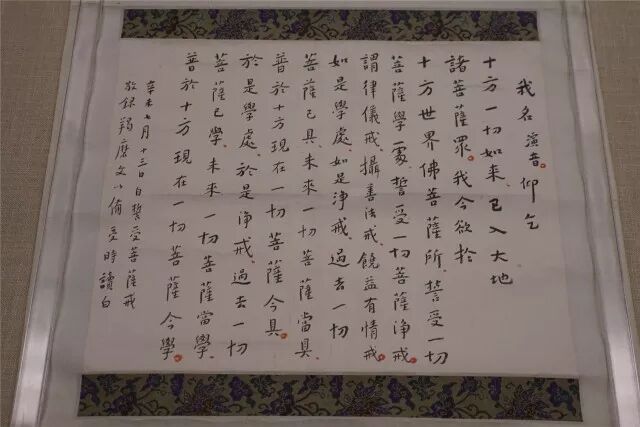 我名演音仰乞
十方一切如来、已入大地
諸菩薩眾。我今欲於
十方世界佛菩薩所、誓受一切
菩薩學處、誓受一切菩薩淨戒。
謂律儀戒、攝善法戒、饒益有情戒。
如是學處、如是淨戒、過去一切
菩薩已具、未來一切菩薩當具、
普於十方現在一切菩薩今具。
於是學處、於是淨戒、過去一切
菩薩已學、未來一切菩薩當學、
普於十方現在一切菩薩今學。
辛未七月十三日自誓受菩薩戒
敬錄羯磨文以備受時讀白